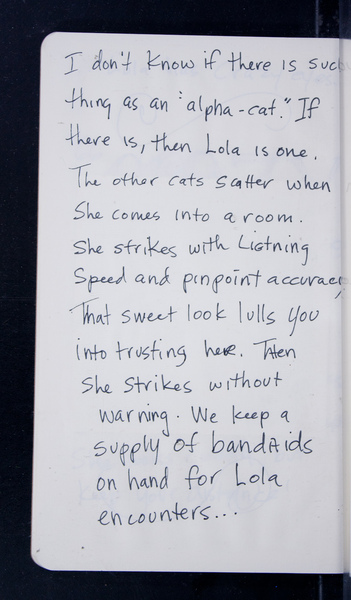 I don't know if there is such
thing as an "alpha-cat." If
there is, then Lola is one.
The other cats scatter when
She comes into a room.
She strikes with Lightning
Speed and pinpoint accuracy
That sweet look lulls you
into trusting her. Then
She strikes without
warning. We keep a
supply of bandaids
on hand for Lola
encounters...